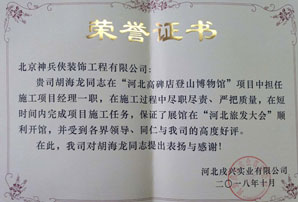 荣誉证书
北京神兵侠装饰工程有限公司：
贵司胡海龙同志在“河北高碑店登山博物馆”项目中担任
施工项目经理一职，在施工过程中尽职尽责、严把质量，在短
时间内完成项目施工任务，保证了展馆在“河北旅发大会”顺
利开馆，并受到各界领导、同仁与我司的高度好评。
在此，我司对胡海龙同志提出表扬与感谢！
河北戌兴实业有限公司
二〇一八年十月